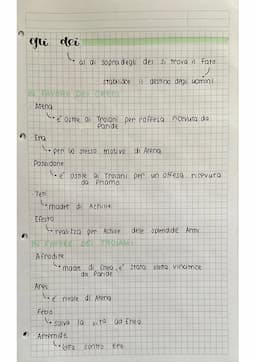 gli dei
al di sopra degli dei si trova il Fato
stabilisce il destino degli uomini
IN FAVORE DEI GRECI
Atena
è ostile ai Troiani per l'offesa ricevuta da
Paride
Era
per lo stesso motivo di Atena
Poseidone
è ostile ai Troiani per un offesa ricevuta
da Priamo
Teti
madre di Achille
Efesto
realizza per Achille delle splendide Armi
IN FAVORE DEI TROIANI
Afrodite
madre di Enea, e' stata eletta vincitrice
da Paride
Ares
è rivale di Atena
Febo
salva la vita ad Enea
Artemide
lotta contro Era